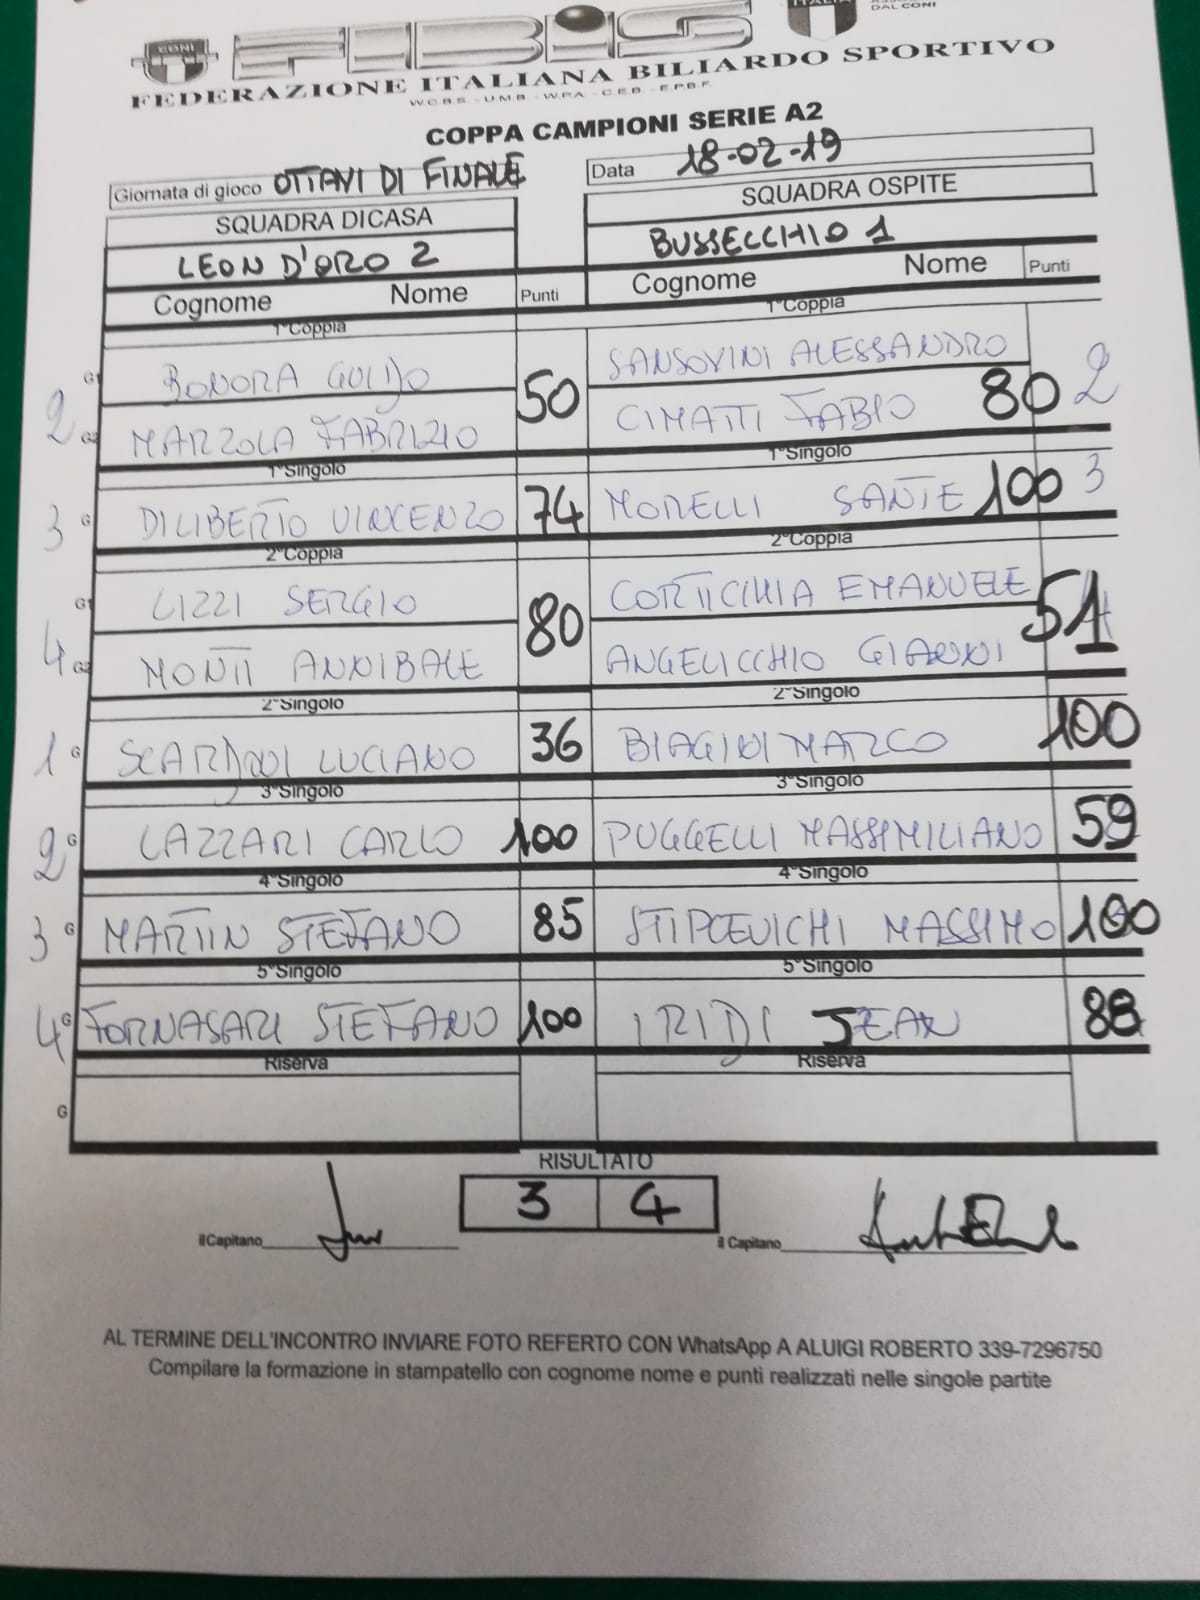 CONI FIBiS ITALIA
DAL CONI
FEDERAZIONE ITALIANA BILIARDO SPORTIVO
W.C.B.S. - U.M.B. - W.P.A. - C.E.B. - E.P.B.F.
COPPA CAMPIONI SERIE A2
Giornata di gioco OTTAVI DI FINALE Data 18-02-19
SQUADRA DI CASA SQUADRA OSPITE
LEON D'ORO 2 BUSSECCHIO 1
Cognome Nome Punti Cognome Nome Punti
1°Coppia 1°Coppia
G1 BONORA GUIDO SANSOVINI ALESSANDRO
2 50 80 2
G2 MARZOLA FABRIZIO CIMATTI FABIO
1°Singolo 1°Singolo
3 G DILIBERTO VINCENZO 74 MORELLI SANTE 100 3
2°Coppia 2°Coppia
G1 LIZZI SERGIO CORTICCHIA EMANUELE
4 80 51
G2 MONTI ANNIBALE ANGELICCHIO GIANNI
2°Singolo 2°Singolo
1 G LUCIANO 36 BIAGINI MARCO 100
3°Singolo 3°Singolo
2 G LAZZARI CARLO 100 PUGGELLI MASSIMILIANO 59
4°Singolo 4°Singolo
3 G MARTIN STEFANO 85 STIPCEVICHI MASSIMO 100
5°Singolo 5°Singolo
4 G FORNASARI STEFANO 100 IRIDI JEAN 88
Riserva Riserva
G
RISULTATO
3 4
il Capitano il Capitano
AL TERMINE DELL'INCONTRO INVIARE FOTO REFERTO CON WhatsApp A ALUIGI ROBERTO 339-7296750
Compilare la formazione in stampatello con cognome nome e punti realizzati nelle singole partite